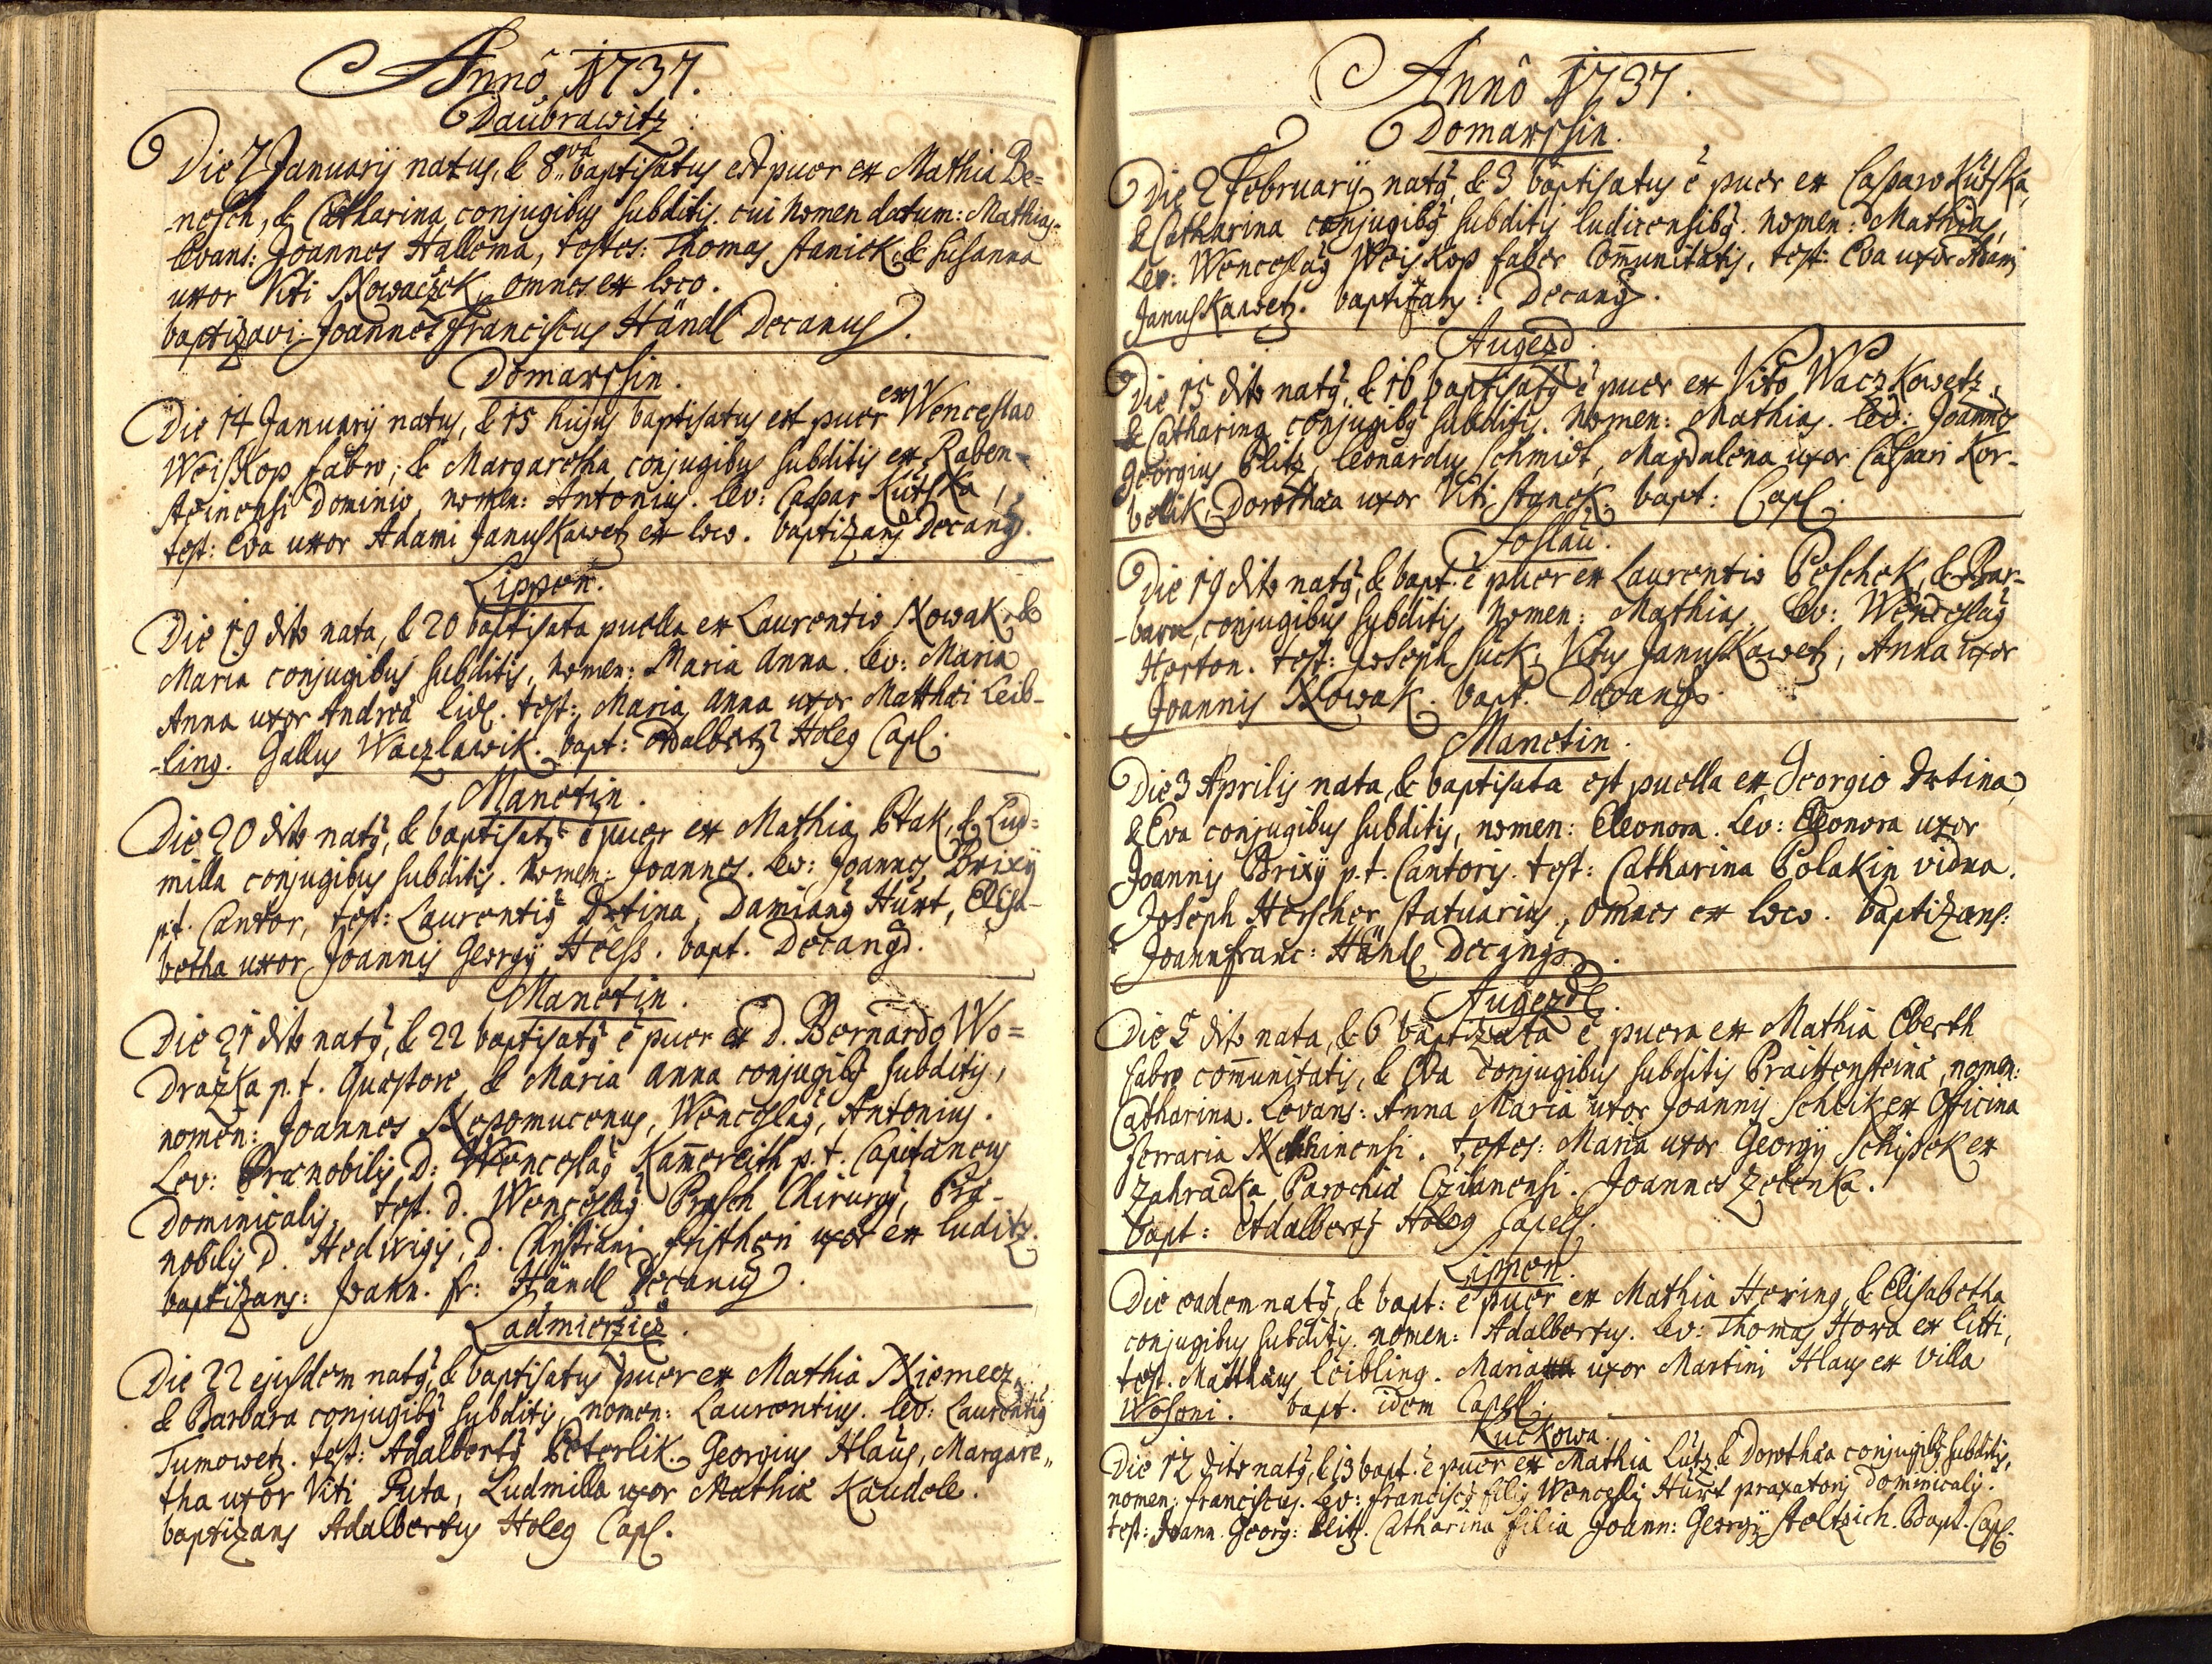 Annô 1737.
Daubrawitz
Die 7 Januarij natus, & 8va baptisatus est puer ex Mathia Be=
nesch, & Catharina conjugibus subditis. cui Nomen datum: Mathias.
levans: Joannes Hallema, testes: Thomas Staniek, & Susanna
uxor Viti Nowaczek, omnes ex loco.
baptizavi Joannes Franciscus Händl Decanus.
Domarshin.
Die 14 Januarij natus, & 15 hujus baptisatus est puer ex Wenceslao
Weiskop fabro, & Margaretha conjugibus subditis ex Raben-
steinensi Dominio, nomen: Antonius. lev: Caspar Kutska,
test: Eva uxor Adami Januskawetz ex loco. baptizans Decanus.
Lippen.
Die 19 dito nata, & 20 baptisata puella ex Laurentio Nowak, &
Maria conjugibus subditis, nomen: Maria Anna. lev: Maria
Anna uxor Andreæ Lidl. test: Maria Anna uxor Matthæi Leib-
-ling. Gallus Waczlawik. bapt: Adalbertus Holeg Capl.
Manetin.
Die 20 dito natus, & baptisatus ē puer ex Mathia Ptak, & Lud=
milla conjugibus subditis. Nomen: Joannes. lev: Joannes Brixij
p.t. Cantor, test: Laurentius Drtina, Damianus Hurt, Elisa-
betha uxor Joannis Georgij Hoess. bapt. Decanus.
Manetin.
Die 21 dito natus, & 22 baptisatus ē puer ex D. Bernardo Wo=
drazka p.t. Quæstore, & Maria Anna conjugibus subditis,
nomen: Joannes Nepomucenus, Wenceslaus, Antonius.
Lev: Prænobilis D: Wenceslaus Kamereith p.t. Capitaneus
Dominicalis, test. D. Wenceslaus Prosch Chirurgus, Præ-
nobilis D. Hedwigis, D. Christiani Fristhen uxor ex luditz.
baptizans: Joann. fr: Händl Decanus.
Ladmierzicz.
Die 22 ejusdem natus, & baptisatus puer ex Mathia Niemecz,
& Barbara conjugibus subditis, nomen: Laurentius. lev: Laurentius
Tumowetz. test: Adalbertus Peterlik. Georgius Hlaus, Margare„
tha uxor Viti Puta, Ludmilla uxor Mathiæ Kaudele.
baptizans Adalbertus Holeg Capl.
Annô 1737.
Domarshin.
Die 2 Februarij natus, & 3 baptisatus ē puer ex Casparo Kutska,
& Catharina conjugibus subditis ludicensibus. nomen: Mathias,
Lev: Wenceslaus Weiskop faber Communitatis, test: Eva uxor Adami
Januskawetz. baptizans: Decanus.
Augezd.
Die 15 dito natus, & 16 baptisatus ē puer ex Vito Waczkowetz,
& Catharina conjugibus subditis. Nomen: Mathias. lev: Joannes
Georgius Plitz, Leonardus Schmidt, Magdalena uxor Caspari Kor-
belik, Dorothæa uxor Viti Stanek. bapt: Capl.
Joslau.
Die 19 dito natus, & bapt. ē puer ex Laurentio Peschek, & Bar-
-bara, conjugibus subditis, Nomen: Mathias. lev: Wenceslaus
Horton. test: Joseph Suck, Vitus Januskawetz, Anna uxor
Joannis Nowak. bapt. Decanus.
Manetin.
Die 3 Aprilis nata, & baptisata est puella ex Georgio Drtina,
& Eva conjugibus subditis, nomen: Eleonora. Lev: Eleonora uxor
Joannis Brixij p.t. Cantoris. test: Catharina Polakin vidua.
Joseph Herscher statuarius, omnes ex loco. baptizans:
Joann franc: Händl Decanus.
Augezdl.
Die 5 dito nata, & 6 baptizata ē puera ex Mathia Eberth
fabro communitatis, & Eva conjugibus subditis Praittensteinæ, nomen:
Catharina. Levans: Anna Maria uxor Joannis Schleik ex Officina
ferraria. testes: Maria uxor Georgij Schipek ex
Zahradka Parochia Czihanensi. Joannes Zelenka.
bapt: Adalbertus Holeg Capell.
Lippen.
Die eadem natus, & bapt: ē puer ex Mathia Hering, & Elisabetha
conjugibus subditis. nomen: Adalbertus. Lev: Thomas Hora ex litti,
test. Matthæus Leibling. Maria uxor Martini Hlaus ex villa
Wosoni. bapt. idem Capell.
Kuckowa.
Die 12 dito natus, & 13 bapt. ē puer ex Mathia Lutz, & Dorothæa conjugibus subditis,
nomen: Franciscus. Lev: Franciscus filius Wenceslai Hurt praxatoris Dominicalis.
test: Joann Georg: Plitz. Catharina filia Joann: Georgij Stoltzich. Bapt. Capl.